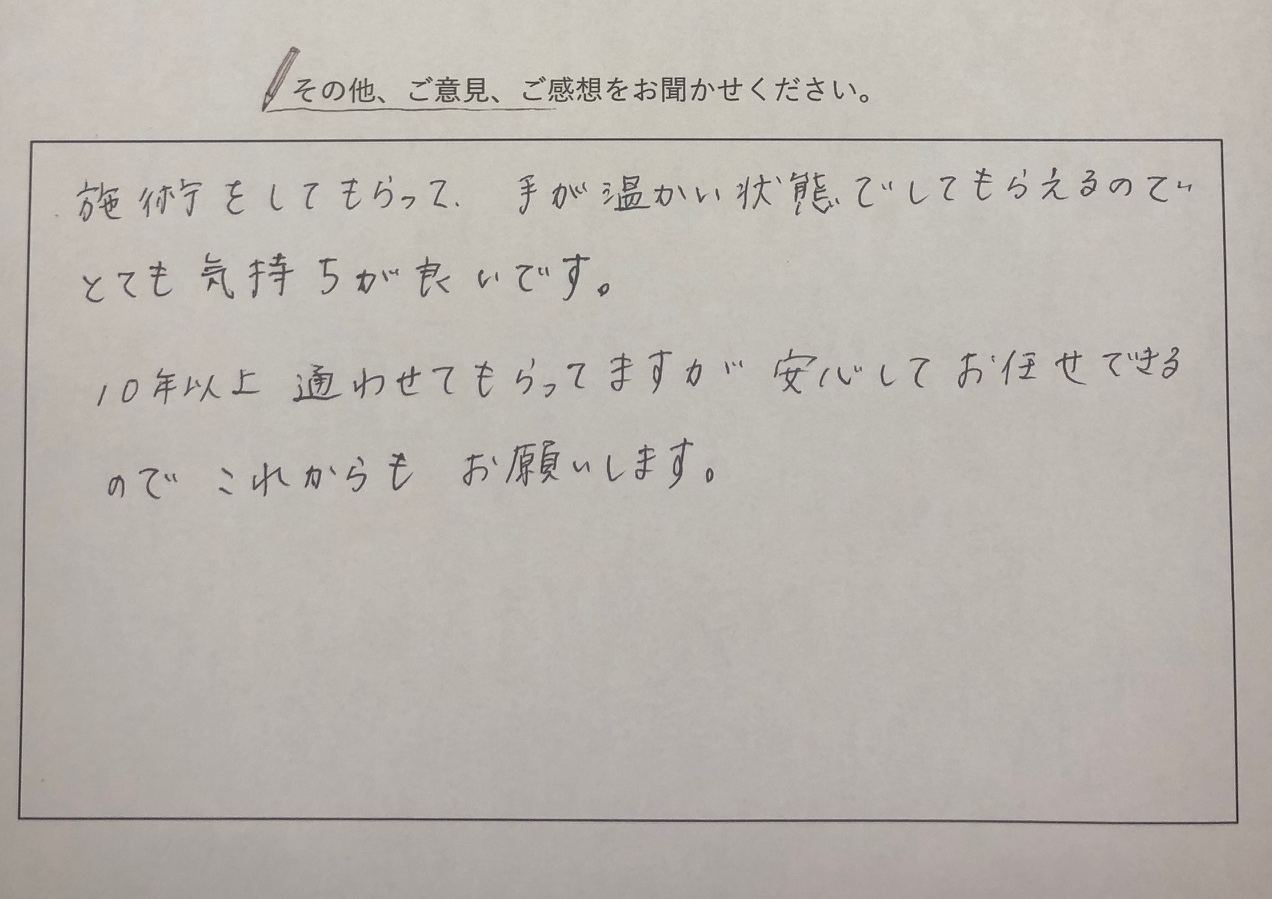 その他、ご意見、ご感想をお聞かせください。
施術をしてもらって、手が温かい状態でしてもらえるので
とても気持ちが良いです。
10年以上 通わせてもらってますが 安心してお任せできる
ので これからも お願いします。